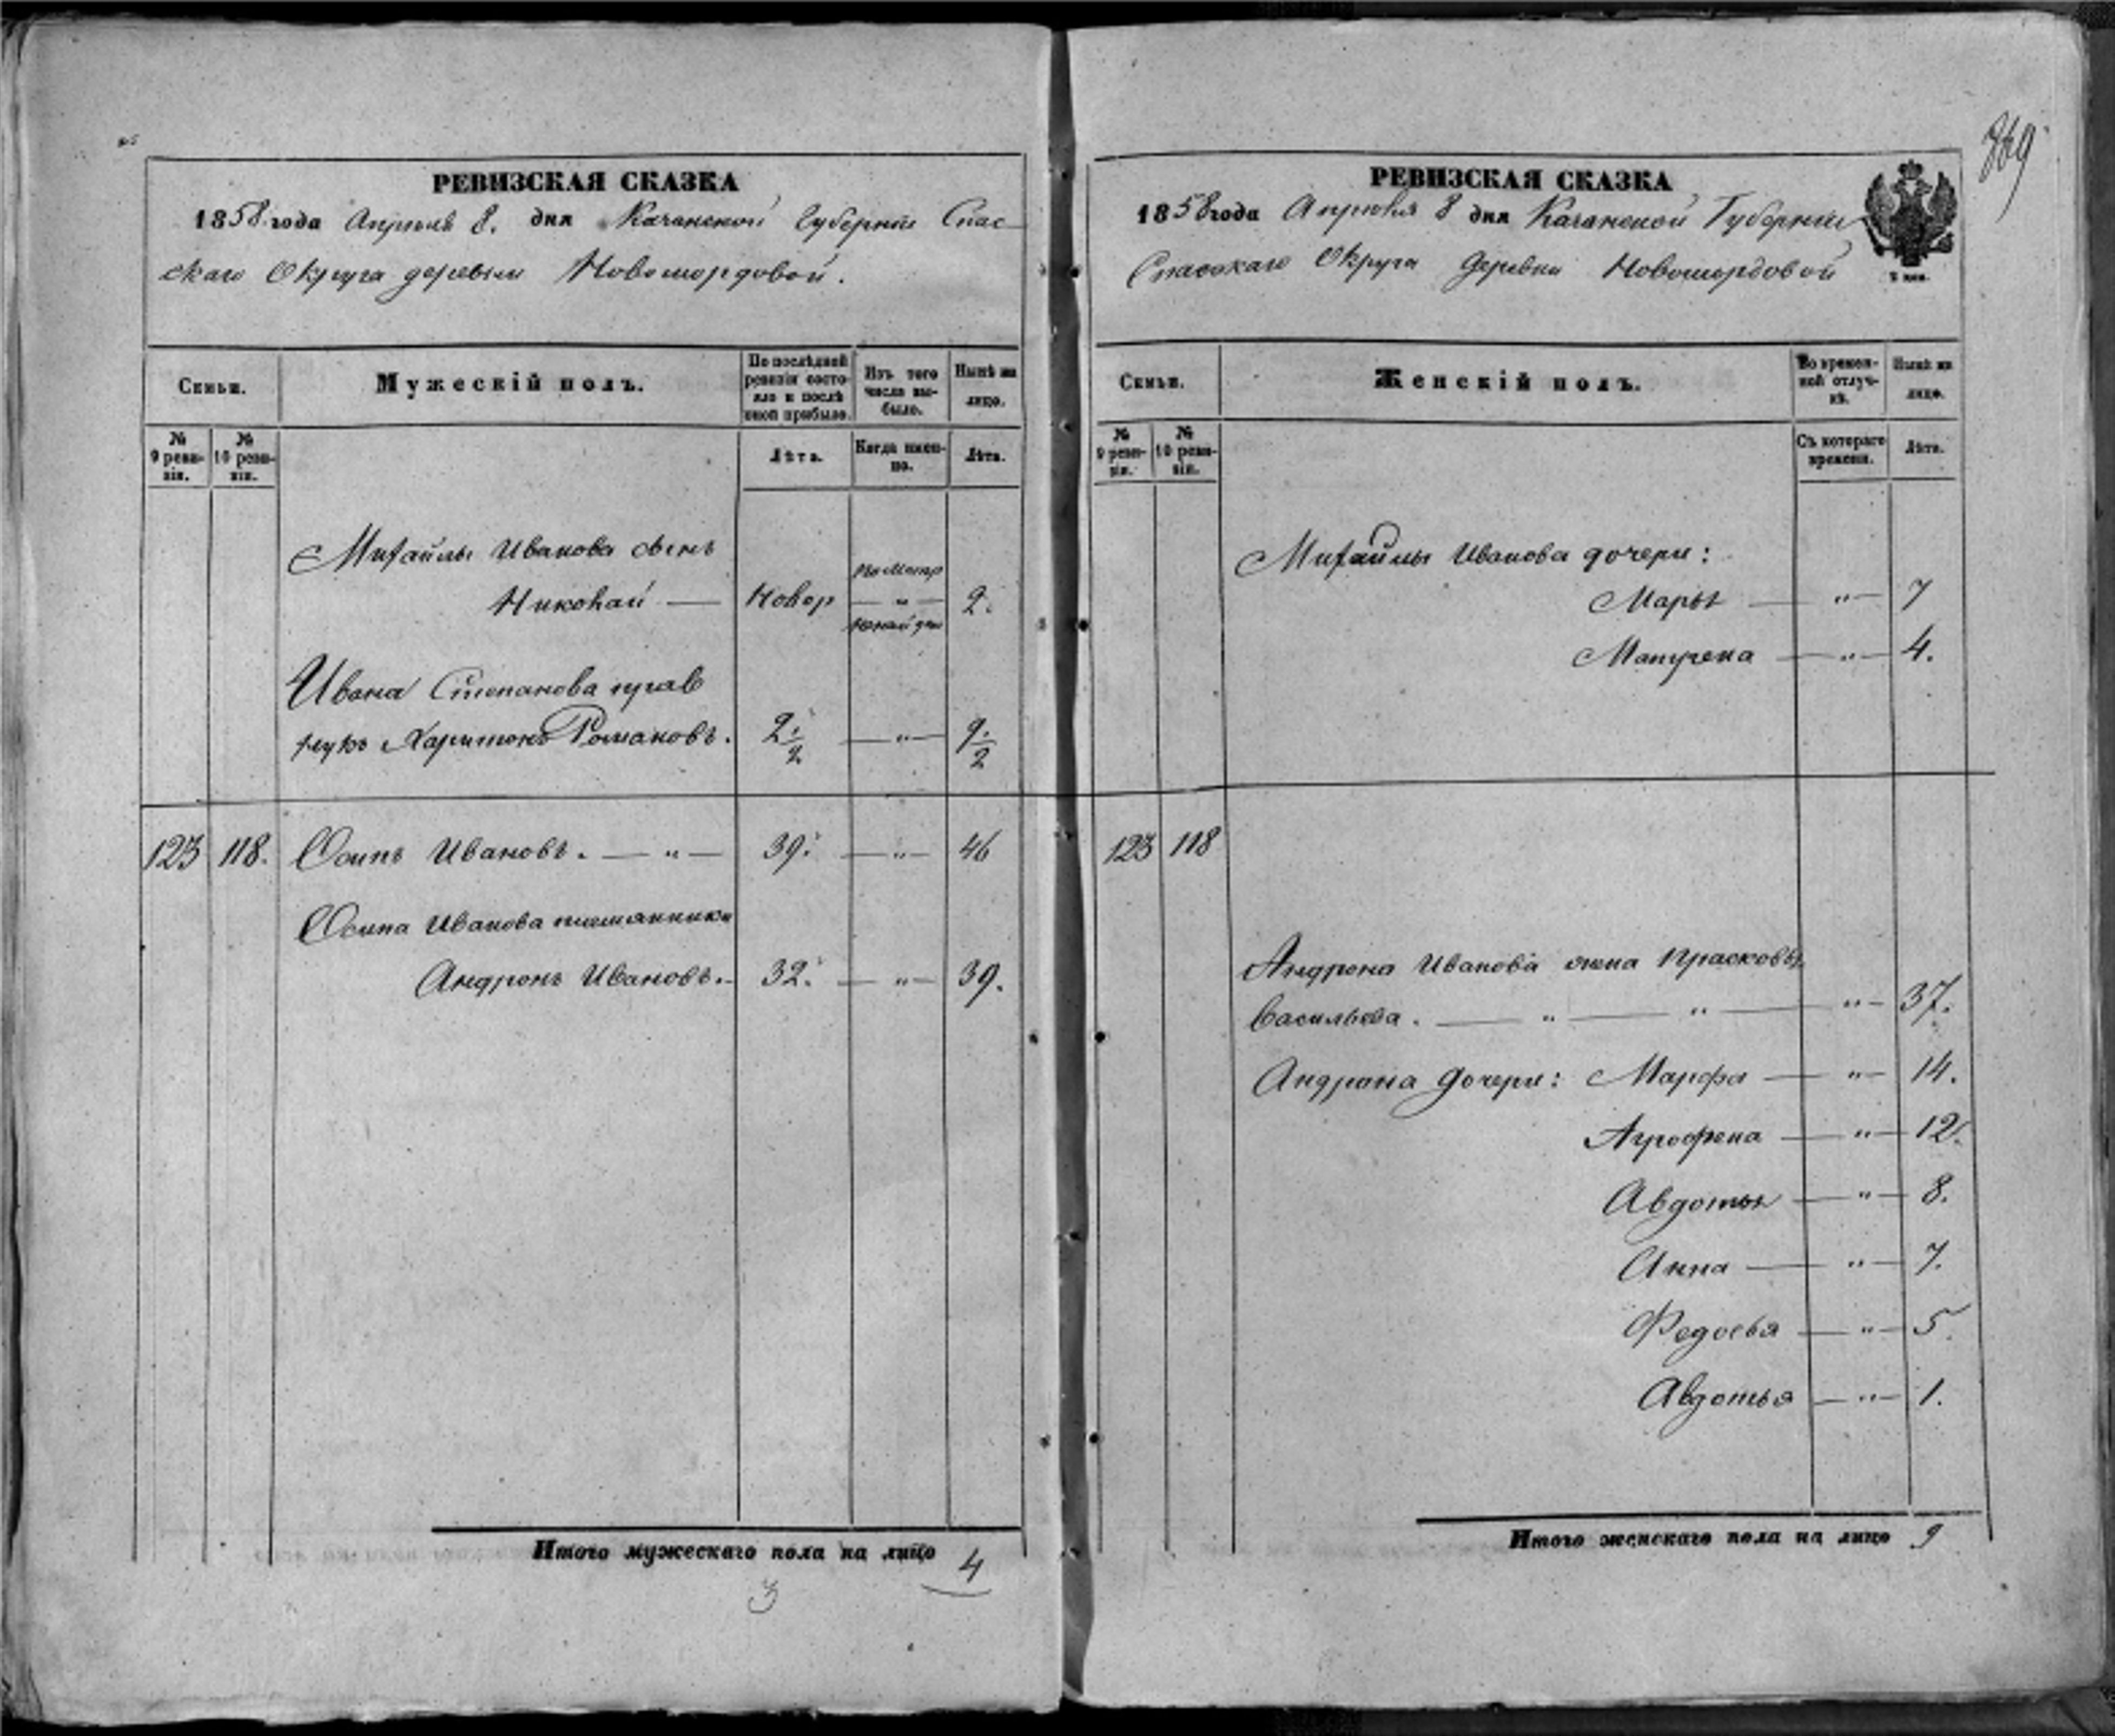 РЕВИЗСКАЯ СКАЗКА
1858 года Апреля 8. дня Казанской Губерніи Спас-
скаго Округа деревни Новомордовой.
Семьи.
Мужескій полъ.
По послѣдней ревизіи состояло и послѣ оной прибыло.
Изъ того числа выбыло.
Нынѣ на лицо.
№ 9 ревизіи.
№ 10 ревизіи.
Лѣта.
Когда именно.
Лѣта.
Михайлы Иванова сынъ
Николай — Новор — " — 2.
Ивана Степанова прав
нукъ Харитонъ Романовъ. 2 1/2 — " — 9 1/2
123 118. Осипъ Ивановъ. — " — 39. — " — 46
Осипа Иванова племянники
Андронъ Ивановъ. 32. — " — 39.
Итого мужескаго пола на лицо 4
3
869
РЕВИЗСКАЯ СКАЗКА
1858 года Апреля 8 дня Казанской Губерніи
Спасскаго Округа Деревни Новомордовой
Семьи.
Женскій полъ.
Во временной отлучкѣ.
Нынѣ на лицо.
№ 9 ревизіи.
№ 10 ревизіи.
Съ котораго времени.
Лѣта.
Михайлы Иванова дочери:
Марья — " — 7
Матрена — " — 4.
123 118
Андрона Иванова жена Прасковья
Васильева. — " — " — " — 37.
Андрона дочери: Марфа — " — 14.
Агрофена — " — 12.
Авдотья — " — 8.
Анна — " — 7.
Федосья — " — 5.
Авдотья — " — 1.
Итого женскаго пола на лицо 9